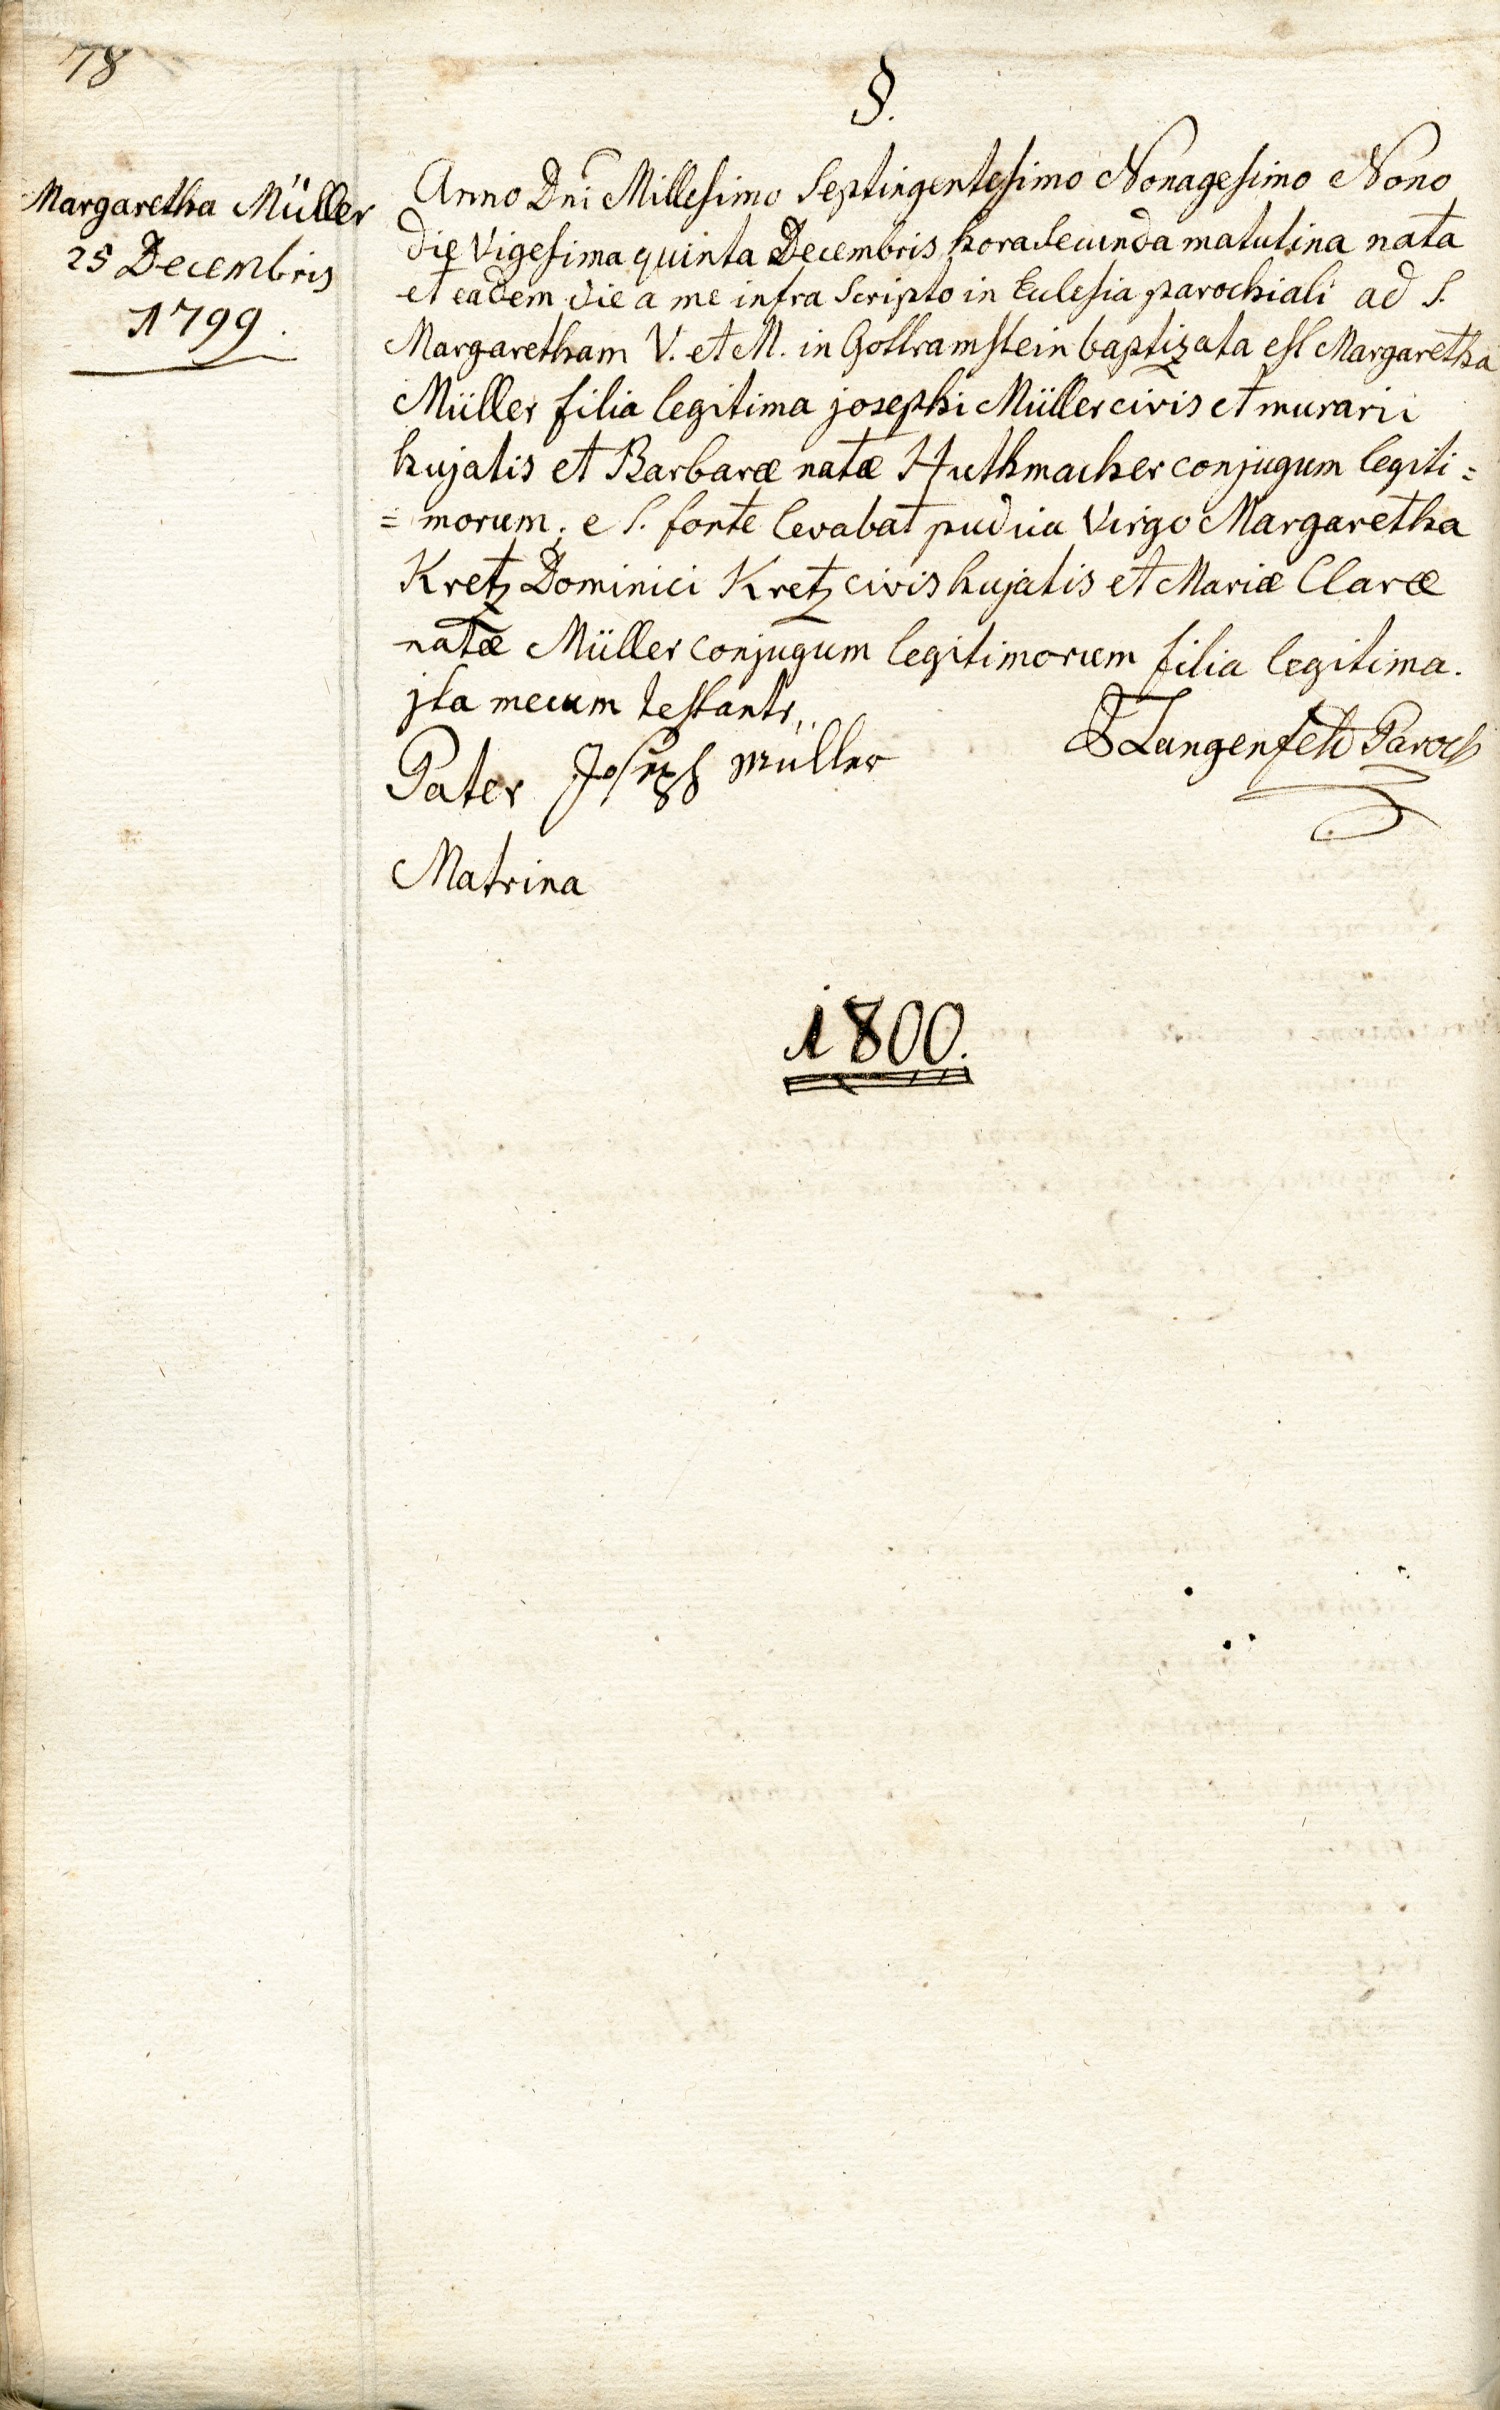 78
§.
Margaretha Müller
25 Decembris
1799.
Anno Dni Millesimo Septingentesimo Nonagesimo Nono
die Vigesima quinta Decembris hora Secunda matutina nata
et eadem die a me infra Scripto in Eclesia parochiali ad S.
Margaretham V. et M. in Gottramstein baptizata est Margaretha
Müller filia legitima josephi Müller civis et murarii
hujatis et Barbaræ natæ Huthmacher conjugum legiti=
=morum; e S. fonte levabat pudica Virgo Margaretha
Kretz Dominici Kretz civis hujatis et Mariæ Claræ
natæ Müller conjugum legitimorum filia legitima.
jta mecum testantr..
Pater Joseph müller
Langenfeld Paroch
Matrina
1800.